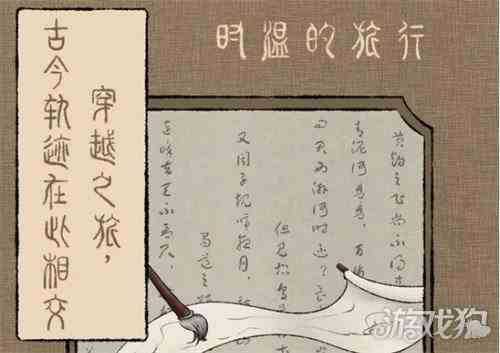 时温的旅行
穿越之旅，
古今轨迹在此相交
黄鹤之飞尚不得
青泥何盘盘，百
问君西游何时还？畏
但见悲鸟
又闻子规啼夜月，
蜀道之
连峰去天不盈尺，
游戏狗